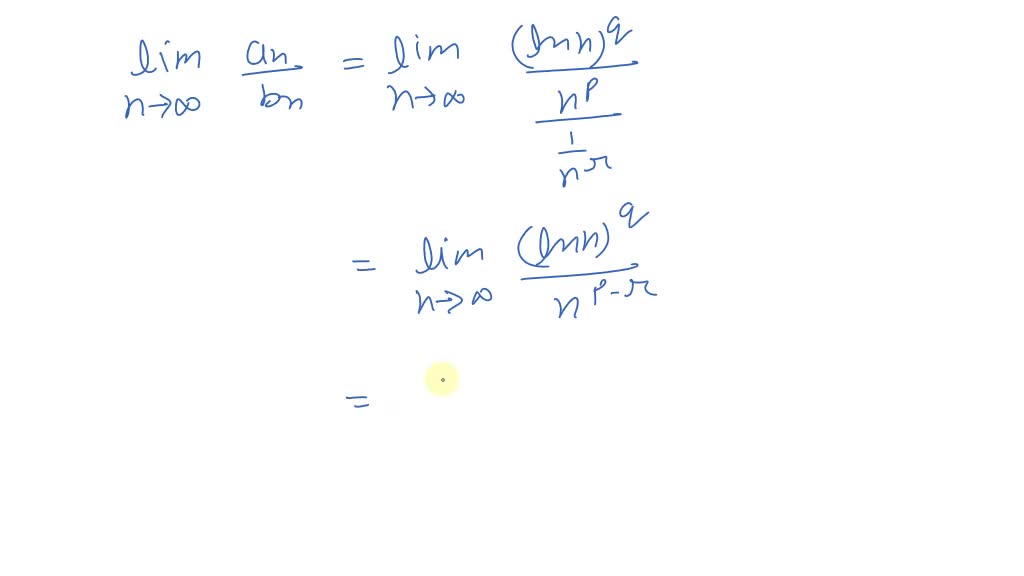 lim n→∞ an/bn = lim n→∞ ((ln n)^q / n^p) / (1/n^r)
= lim n→∞ (ln n)^q / n^(p-r)
=